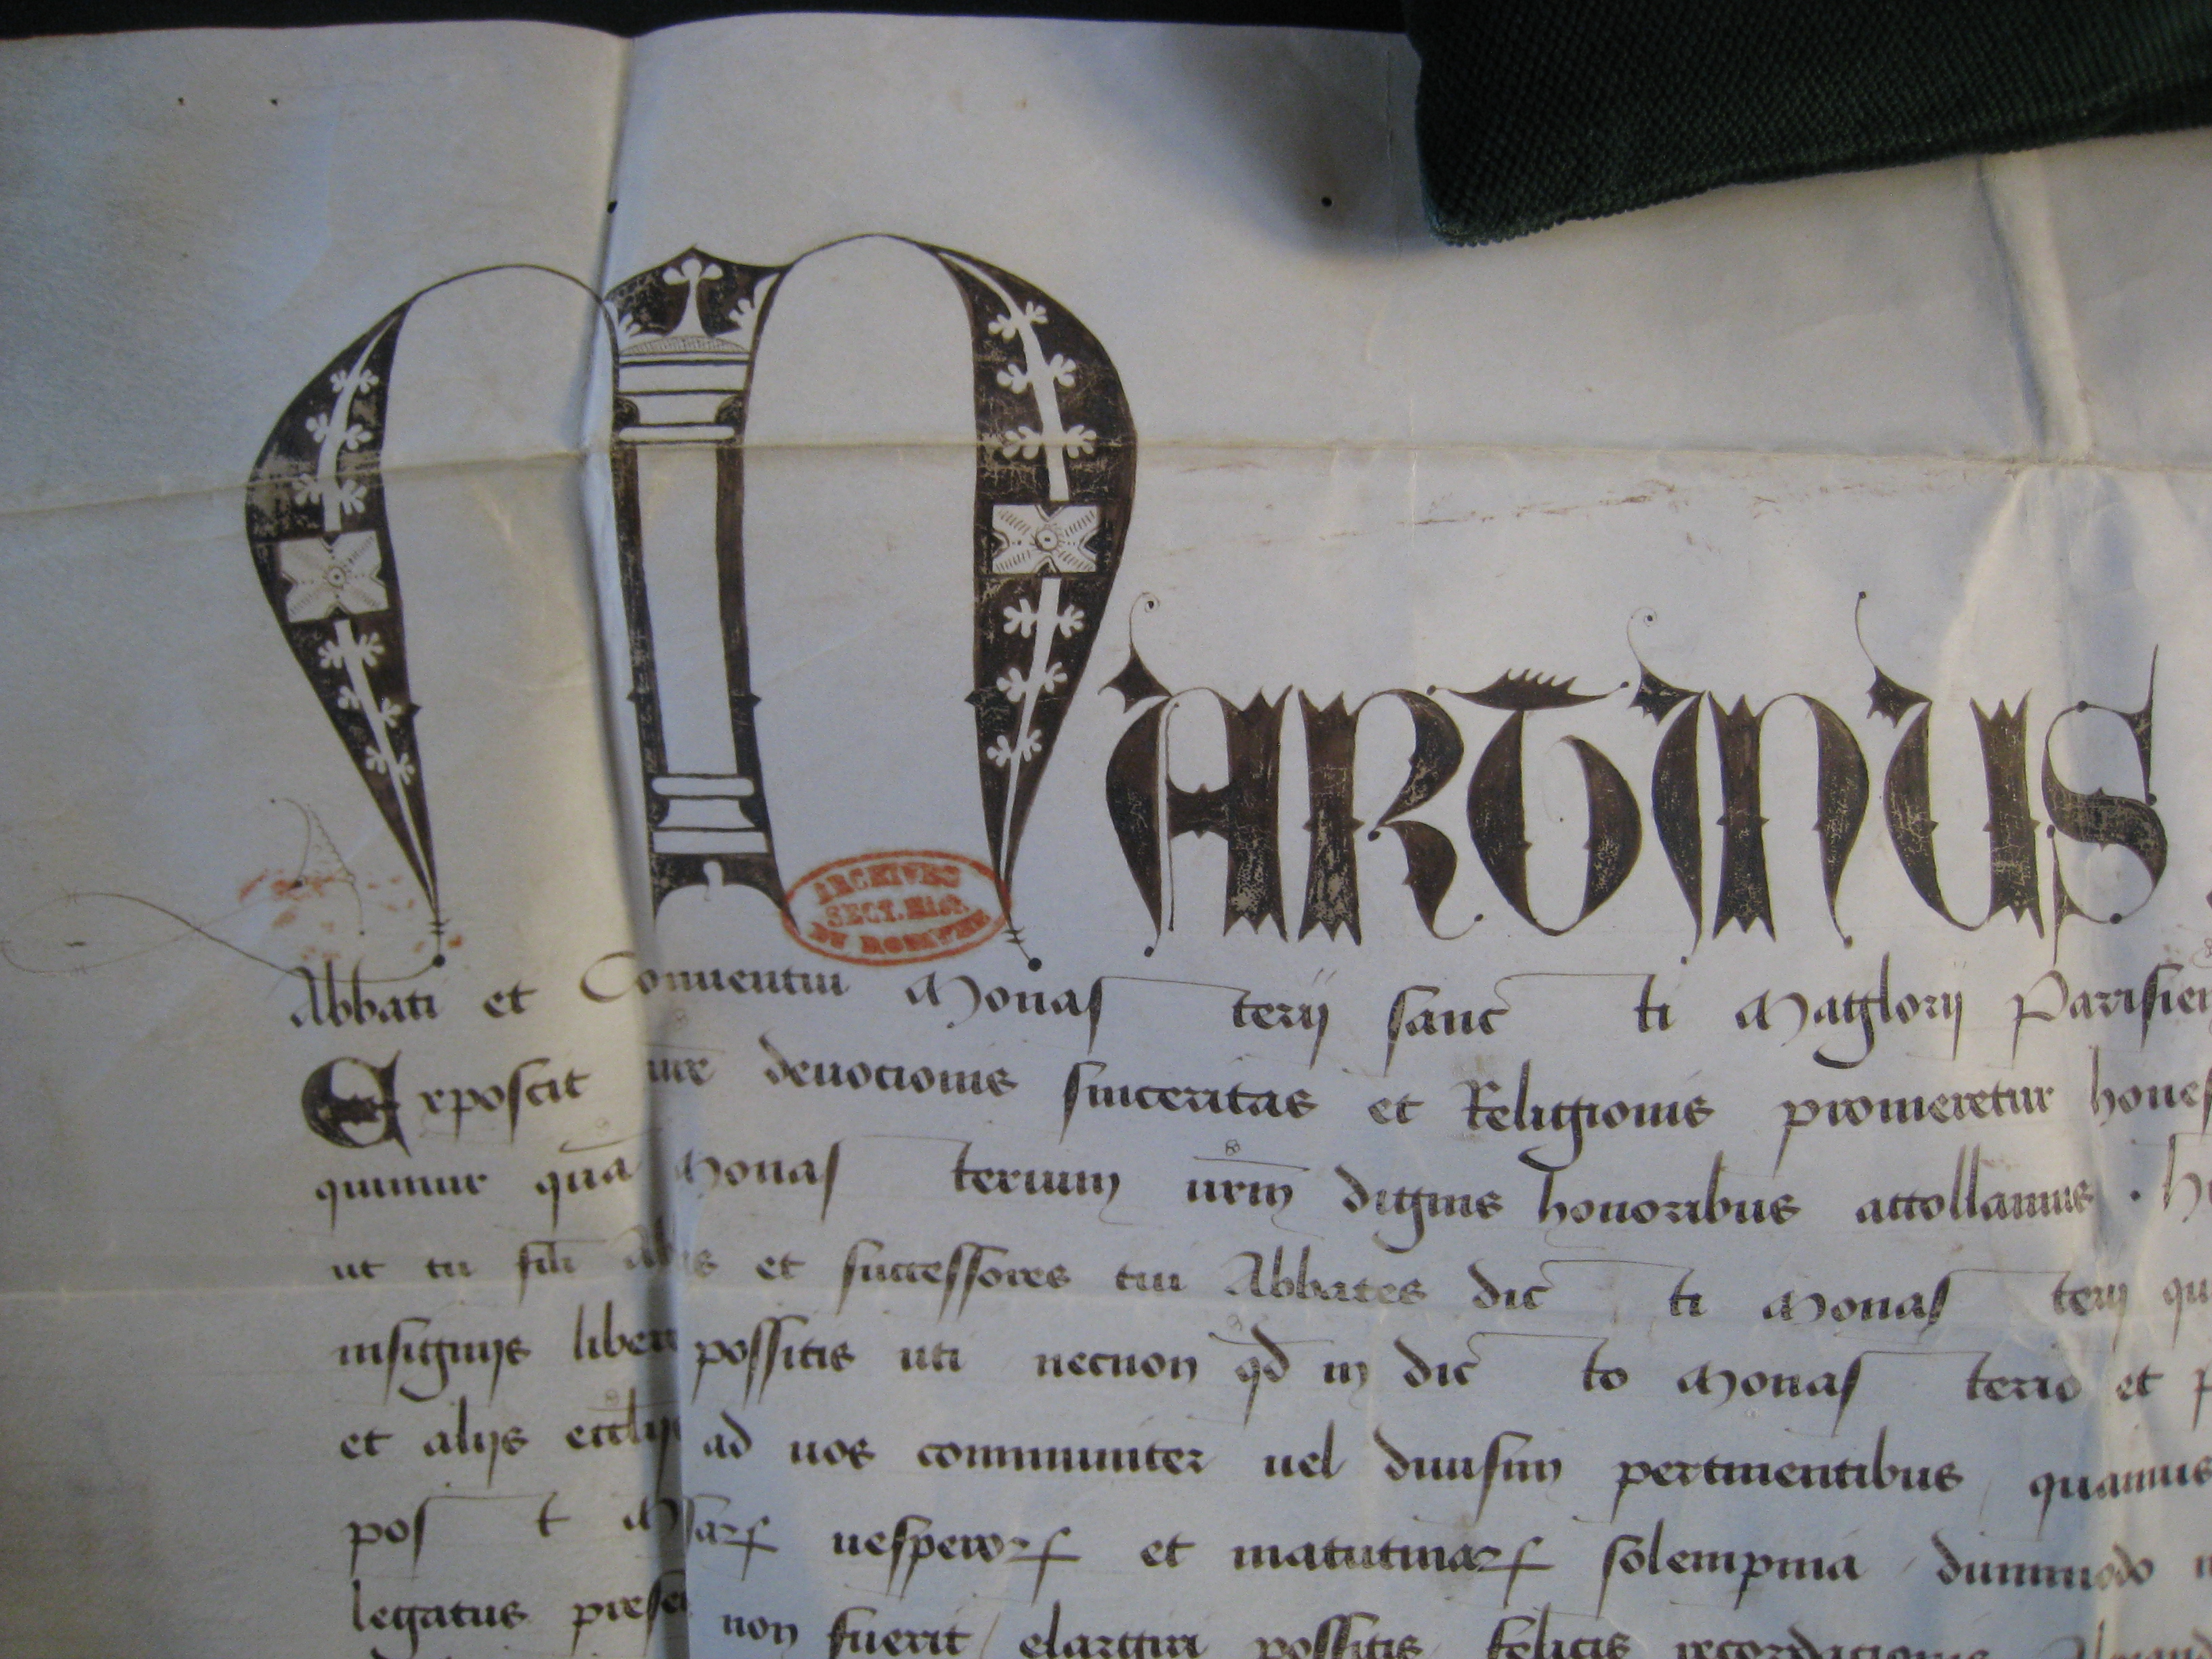 MARTINUS
ARCHIVES
SECT. HIST.
DU ROYAUME
Abbati et Conuentui Monasterij sancti Maglorij Parisien
Exposcit ure deuotionis sinceritas et Religionis promeretur hones
quimur qua Monasterium urm dignis honoribus attollamus . H
ut tu fili Abbas et successores tui Abbates dicti Monasterij qu
insignijs libere possitis uti necnon qd in dicto Monasterio et p
et alijs ecclijs ad uos communiter uel diuisim pertinentibus / quamuis
post Missarꝝ uesperorꝝ et matutinarꝝ solempnia / dummodo
legatus presens non fuerit / elargiri possitis / felicis recordationis Alexand